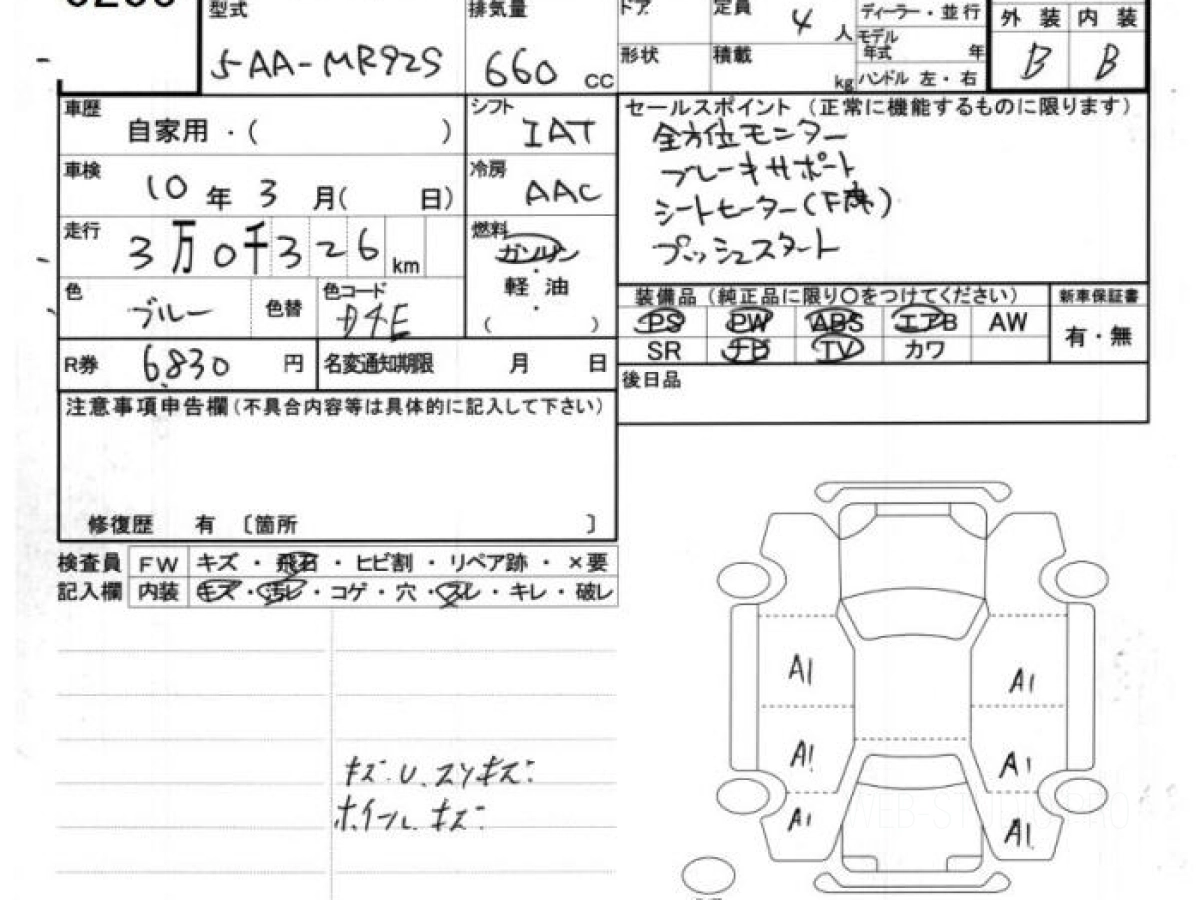 型式 排気量 ドア 定員 4 人 ディーラー・並行 外装 内装
5AA-MR92S 660 CC 形状 積載 kg モデル年式 年 B B
ハンドル 左・右
車歴 自家用・( ) シフト IAT セールスポイント (正常に機能するものに限ります)
全方位モニター
車検 10年3月( 日) 冷房 AAC ブレーキサポート
シートヒーター(F席)
走行 3万0千326km 燃料 ガソリン・軽油・( ) プッシュスタート
色 ブルー 色替 色コード 装備品 (純正品に限り○をつけてください) 新車保証書
PS PW ABS エアB AW 有・無
R券 6,830 円 名変通知期限 月 日 SR ナビ TV カワ
後日品
注意事項申告欄(不具合内容等は具体的に記入して下さい)
修復歴 有 〔箇所 〕
検査員 FW キズ・飛石・ヒビ割・リペア跡・×要
記入欄 内装 キズ・汚レ・コゲ・穴・スレ・キレ・破レ
A1 A1
A1 A1
A1 A1
キズ.U.スリキズ.
ホイール.キズ.